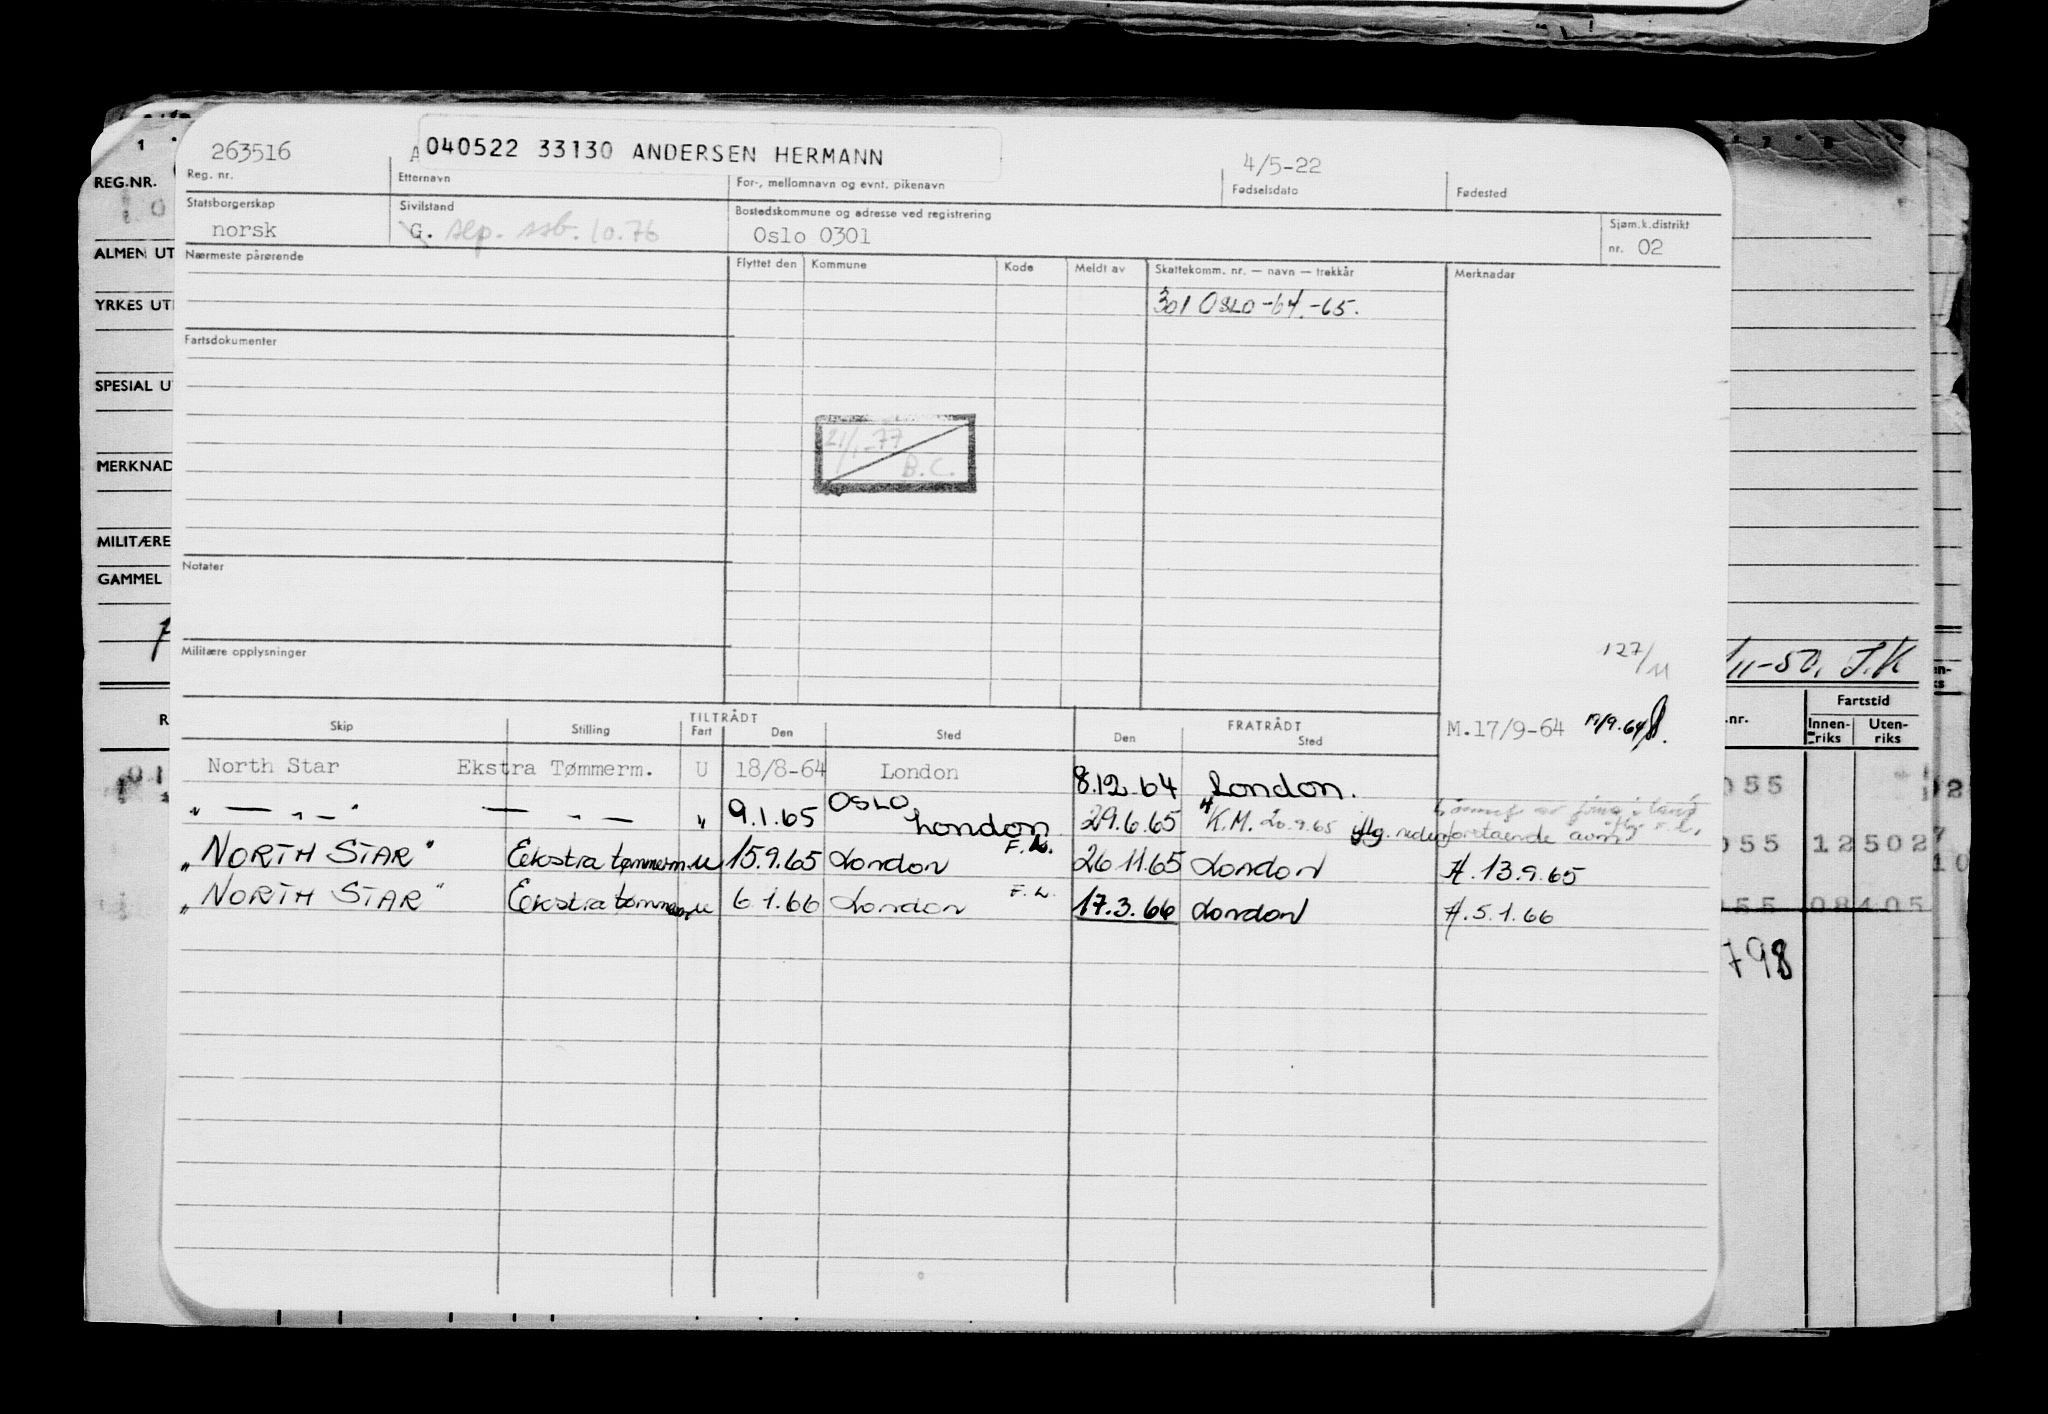 263516
A 040522 33130 ANDERSEN HERMANN
4/5-22
Reg. nr. Etternavn For-, mellomnavn og evnt. pikenavn Fødselsdato Fødested
Statsborgerskap Sivilstand Bostedskommune og adresse ved registrering Sjøm.k.distrikt
norsk G. 10.76 Oslo 0301 nr. 02
Nærmeste pårørende Flyttet den Kommune Kode Meldt av Skattekomm. nr. — navn — trekkår Merknader
301 OSLO -64.-65.
Fartsdokumenter
21/1-77
B.C.
Notater
Militære opplysninger
127/11
Skip Stilling TILTRÅDT Fart Den Sted FRATRÅDT Den Sted
M.17/9-64 17/9.64
North Star Ekstra Tømmerm. U 18/8-64 London 8.12.64 London.
" — " — " — " — " 9.1.65 OSLO London 29.6.65 K.M. 20.9.65 iflg.
"NORTH STAR" Ekstra tømmerm. U 15.9.65 London F.L. 26.11.65 London A. 13.9.65
"NORTH STAR" Ekstra tømmerm. U 6.1.66 London F.L. 17.3.66 London A. 5.1.66
REG.NR.
ALMEN UT
YRKES UT
SPESIAL U
MERKNAD
MILITÆRE
GAMMEL
/11-50, J.K
.nr. Fartstid
Innen-riks Uten-riks
055
055 12502
055 08405
798